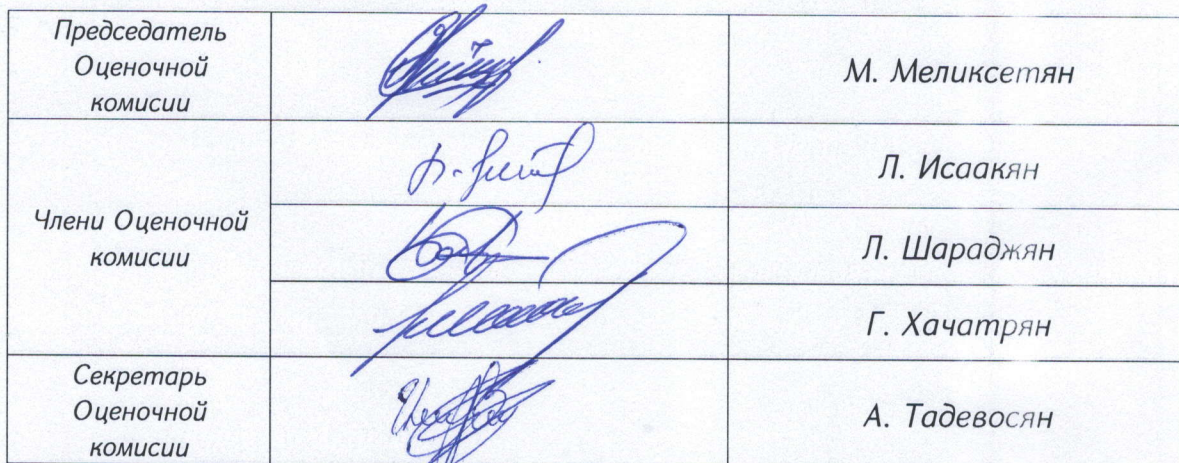 Председатель
Оценочной
комисии
М. Меликсетян
Л. Исаакян
Члени Оценочной
комисии
Л. Шараджян
Г. Хачатрян
Секретарь
Оценочной
комисии
А. Тадевосян